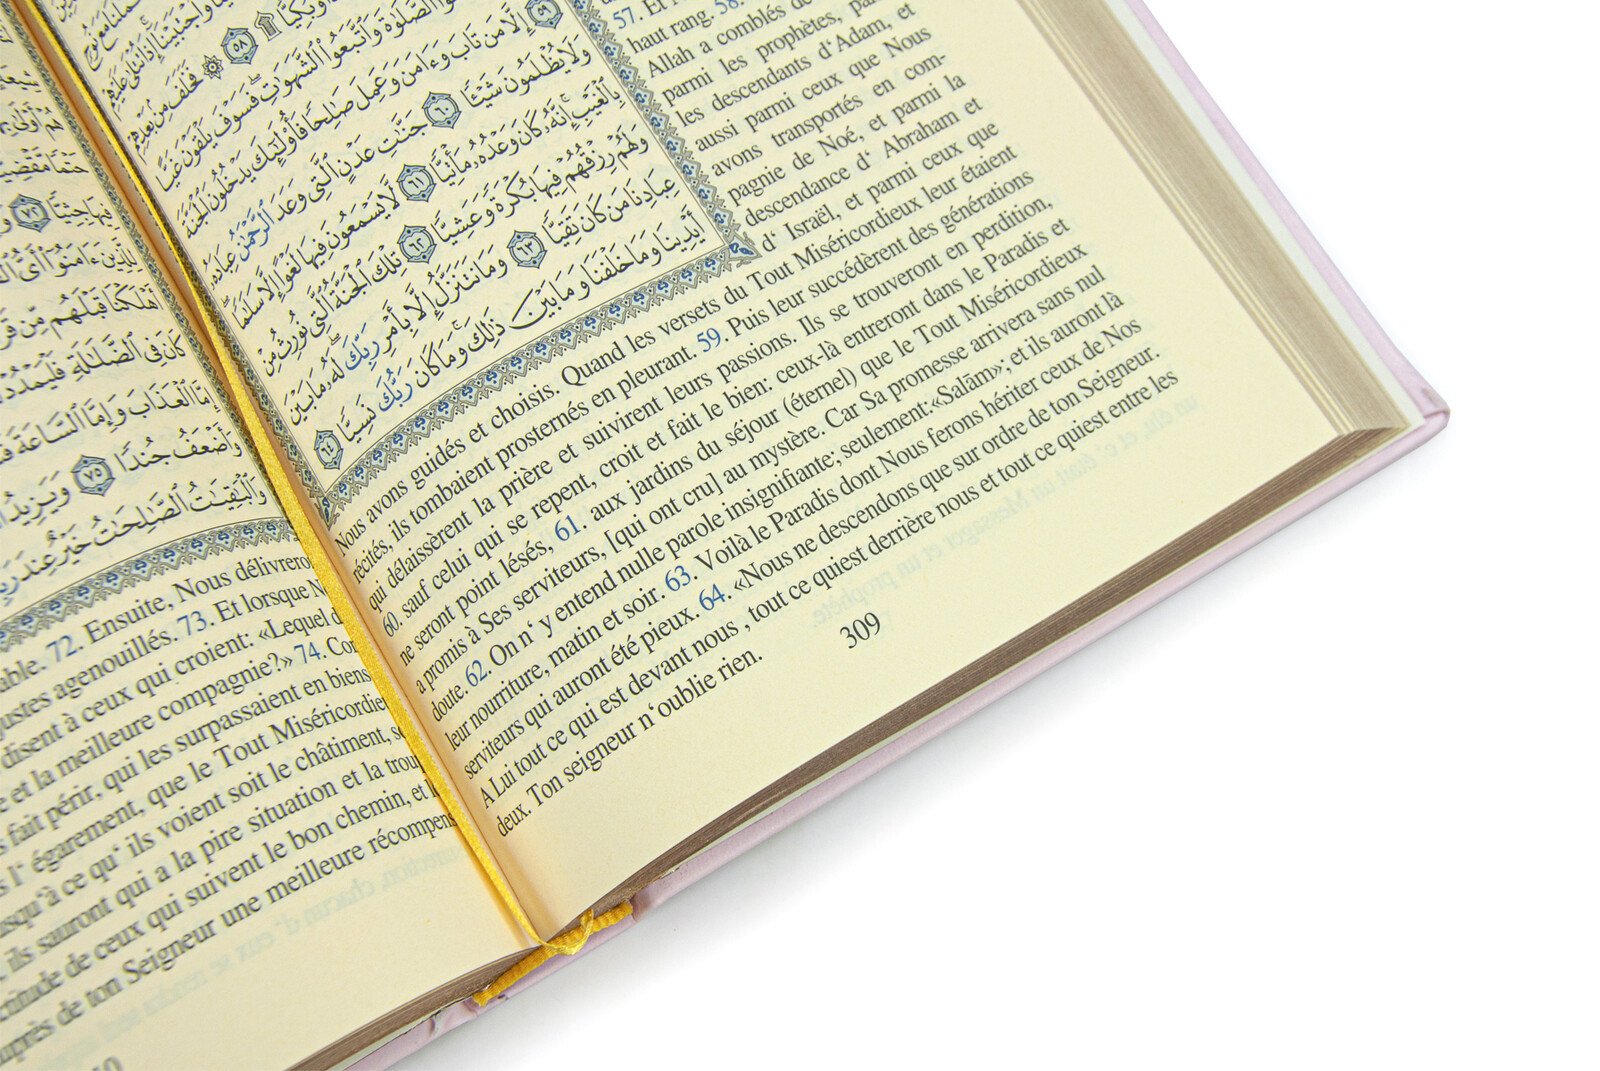 وَٱجْتَبَيْنَآ إِذَا تُتْلَىٰ عَلَيْهِمْ
وَبُكِيًّا ۩ ٥٨ ۞ فَخَلَفَ مِنۢ بَعْدِهِمْ
ٱلصَّلَوٰةَ وَٱتَّبَعُوا۟ ٱلشَّهَوَٰتِ فَسَوْفَ يَلْقَوْنَ غَيًّا
٥٩ إِلَّا مَن تَابَ وَءَامَنَ وَعَمِلَ صَٰلِحًا فَأُو۟لَٰٓئِكَ يَدْخُلُونَ ٱلْجَنَّةَ
وَلَا يُظْلَمُونَ شَيْـًٔا ٦٠ جَنَّٰتِ عَدْنٍ ٱلَّتِى وَعَدَ ٱلرَّحْمَٰنُ عِبَادَهُۥ
بِٱلْغَيْبِ إِنَّهُۥ كَانَ وَعْدُهُۥ مَأْتِيًّا ٦١ لَّا يَسْمَعُونَ فِيهَا لَغْوًا إِلَّا سَلَٰمًا
وَلَهُمْ رِزْقُهُمْ فِيهَا بُكْرَةً وَعَشِيًّا ٦٢ تِلْكَ ٱلْجَنَّةُ ٱلَّتِى نُورِثُ مِنْ
عِبَادِنَا مَن كَانَ تَقِيًّا ٦٣ وَمَا نَتَنَزَّلُ إِلَّا بِأَمْرِ رَبِّكَ لَهُۥ مَا بَيْنَ
أَيْدِينَا وَمَا خَلْفَنَا وَمَا بَيْنَ ذَٰلِكَ وَمَا كَانَ رَبُّكَ نَسِيًّا ٦٤
57. Et
haut rang. 58.
Allah a comblés de
parmi les prophètes,
les descendants d'Adam, et
aussi parmi ceux que Nous
avons transportés en com-
pagnie de Noé, et parmi la
descendance d' Abraham et
d' Israël, et parmi ceux que
Nous avons guidés et choisis. Quand les versets du Tout Miséricordieux leur étaient
récités, ils tombaient prosternés en pleurant. 59. Puis leur succédèrent des générations
qui délaissèrent la prière et suivirent leurs passions. Ils se trouveront en perdition,
60. sauf celui qui se repent, croit et fait le bien: ceux-là entreront dans le Paradis et
ne seront point lésés, 61. aux jardins du séjour (éternel) que le Tout Miséricordieux
a promis à Ses serviteurs, [qui ont cru] au mystère. Car Sa promesse arrivera sans nul
doute. 62. On n' y entend nulle parole insignifiante; seulement:«Salām»; et ils auront là
leur nourriture, matin et soir. 63. Voilà le Paradis dont Nous ferons hériter ceux de Nos
serviteurs qui auront été pieux. 64. «Nous ne descendons que sur ordre de ton Seigneur.
A Lui tout ce qui est devant nous , tout ce quiest derrière nous et tout ce quiest entre les
deux. Ton seigneur n'oublie rien.
309
٧٢
لِلَّذِينَ ءَامَنُوٓا۟ أَىُّ
أَهْلَكْنَا قَبْلَهُم مِّن
كَانَ فِى ٱلضَّلَٰلَةِ فَلْيَمْدُدْ
إِمَّا ٱلْعَذَابَ وَإِمَّا ٱلسَّاعَةَ
وَأَضْعَفُ جُندًا ٧٥ وَيَزِيدُ
وَٱلْبَٰقِيَٰتُ ٱلصَّٰلِحَٰتُ خَيْرٌ عِندَ
72. Ensuite, Nous
agenouillés. 73. Et lorsque
disent à ceux qui croient: «Lequel
et la meilleure compagnie?» 74.
fait périr, qui les surpassaient en biens
l' égarement, que le Tout
à ce qu' ils voient soit le châtiment,
ils sauront qui a la pire situation et la
de ceux qui suivent le bon chemin, et
de ton Seigneur une meilleure